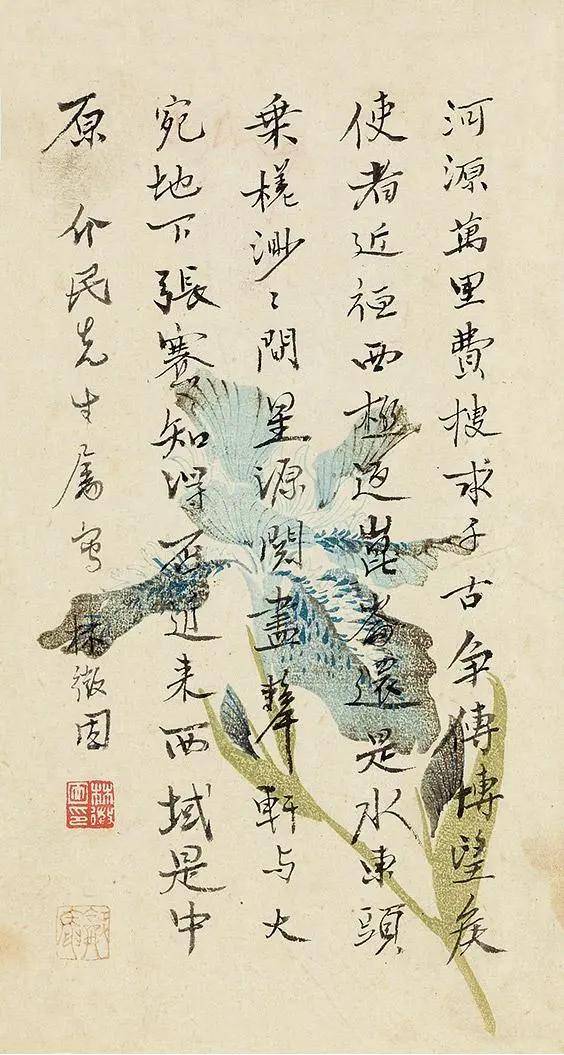 河源萬里費搜求千古争傳博望矦
使者近從西極返崑崙還是水東頭
乗槎渺〻問星源閱盡犂軒与大
宛地下張騫知得否近来西域是中
原 介民先生屬寫 林徽因
林徽因印